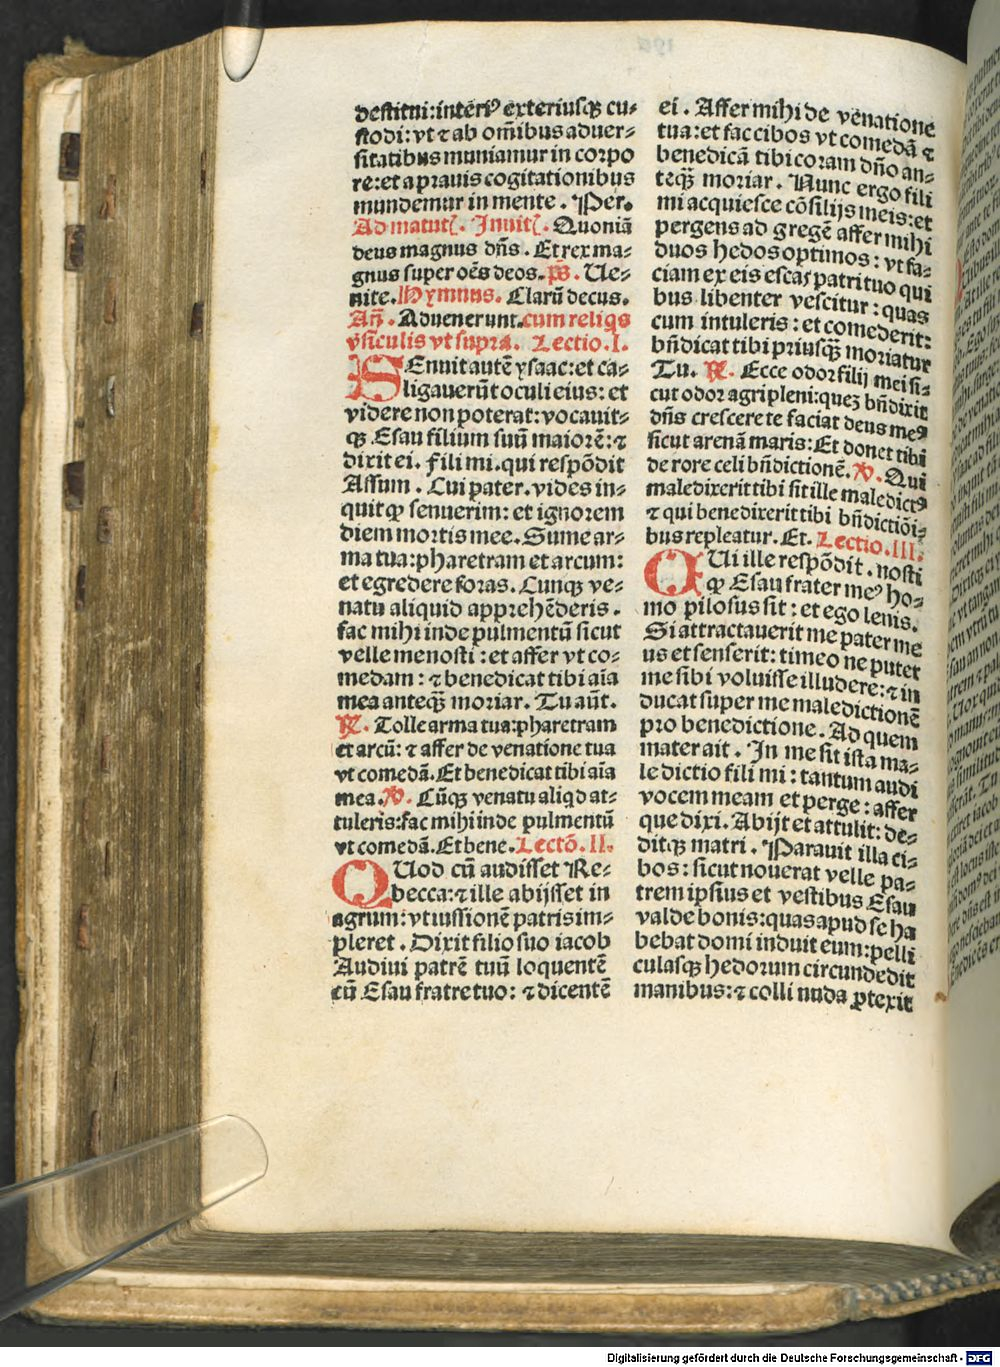 destitui: interi⁹ exteriusqꝫ cu⸗
stodi: vt ⁊ ab om̃ibus aduer⸗
sitatibus muniamur in corpo
re: et a prauis cogitationibus
mundemur in mente. Per.
Ad matut. Inuit. Quoniã
deus magnus dñs. Et rex ma⸗
gnus super oẽs deos. p̃s. Ue⸗
nite. Hymnus. Clarũ decus.
Añ. Aduenerunt. cum reliqs
v̾siculis vt supra. Lectio. I.
SEnuit autẽ ysaac: et ca⸗
ligauerũt oculi eius: et
videre non poterat: vocauit⸗
qꝫ Esau filium suũ maiorẽ: ⁊
dixit ei. fili mi. qui respõdit
Assum. Cui pater. vides in⸗
quit ꝙ senuerim: et ignorem
diem mortis mee. Sume ar⸗
ma tua: pharetram et arcum:
et egredere foras. Cunqꝫ ve⸗
natu aliquid apprehẽderis.
fac mihi inde pulmentũ sicut
velle me nosti: et affer vt co⸗
medam: ⁊ benedicat tibi aĩa
mea anteqꝫ̃ moriar. Tu aũt.
℟. Tolle arma tua: pharetram
et arcũ: ⁊ affer de venatione tua
vt comedã. Et benedicat tibi aĩa
mea. ℣. Cũqꝫ venatu aliqd at⸗
tuleris: fac mihi inde pulmentũ
vt comedã. Et bene. Lectõ. II.
QUod cũ audisset Re⸗
becca: ⁊ ille abijsset in
agrum: vt iussionẽ patris im⸗
pleret. Dixit filio suo iacob
Audiui patrẽ tuũ loquentẽ
cũ Esau fratre tuo: ⁊ dicentẽ
ei. Affer mihi de venatione
tua: et fac cibos vt comedã ⁊
benedicã tibi coram dño an⸗
teqꝫ̃ moriar. Nunc ergo fili
mi acquiesce cõsilijs meis: et
pergens ad gregẽ affer mihi
duos hedos optimos: vt fa⸗
ciam ex eis escas patri tuo qui
bus libenter vescitur: quas
cum intuleris: et comederit:
bñdicat tibi priusqꝫ̃ moriatur
Tu. ℟. Ecce odor filij mei si⸗
cut odor agri pleni: quez bñdixit
dñs crescere te faciat deus me⁹
sicut arenã maris: Et donet tibi
de rore celi bñdictionẽ. ℣. Qui
maledixerit tibi sit ille maledict⁹
⁊ qui benedixerit tibi bñdictiõi⸗
bus repleatur. Et. Lectio. III.
QUi ille respõdit. nosti
ꝙ Esau frater me⁹ ho⸗
mo pilosus sit: et ego lenis.
Si attractauerit me pater me
us et senserit: timeo ne putet
me sibi voluisse illudere: ⁊ in
ducat super me maledictionẽ
pro benedictione. Ad quem
mater ait. In me sit ista ma⸗
ledictio fili mi: tantum audi
vocem meam et perge: affer
que dixi. Abijt et attulit: de⸗
ditqꝫ matri. Parauit illa ci⸗
bos: sicut nouerat velle pa⸗
trem ipsius et vestibus Esau
valde bonis: quas apud se ha
bebat domi induit eum: pelli
culasqꝫ hedorum circundedit
manibus: ⁊ colli nuda ꝓtexit
Digitalisierung gefördert durch die Deutsche Forschungsgemeinschaft - DFG